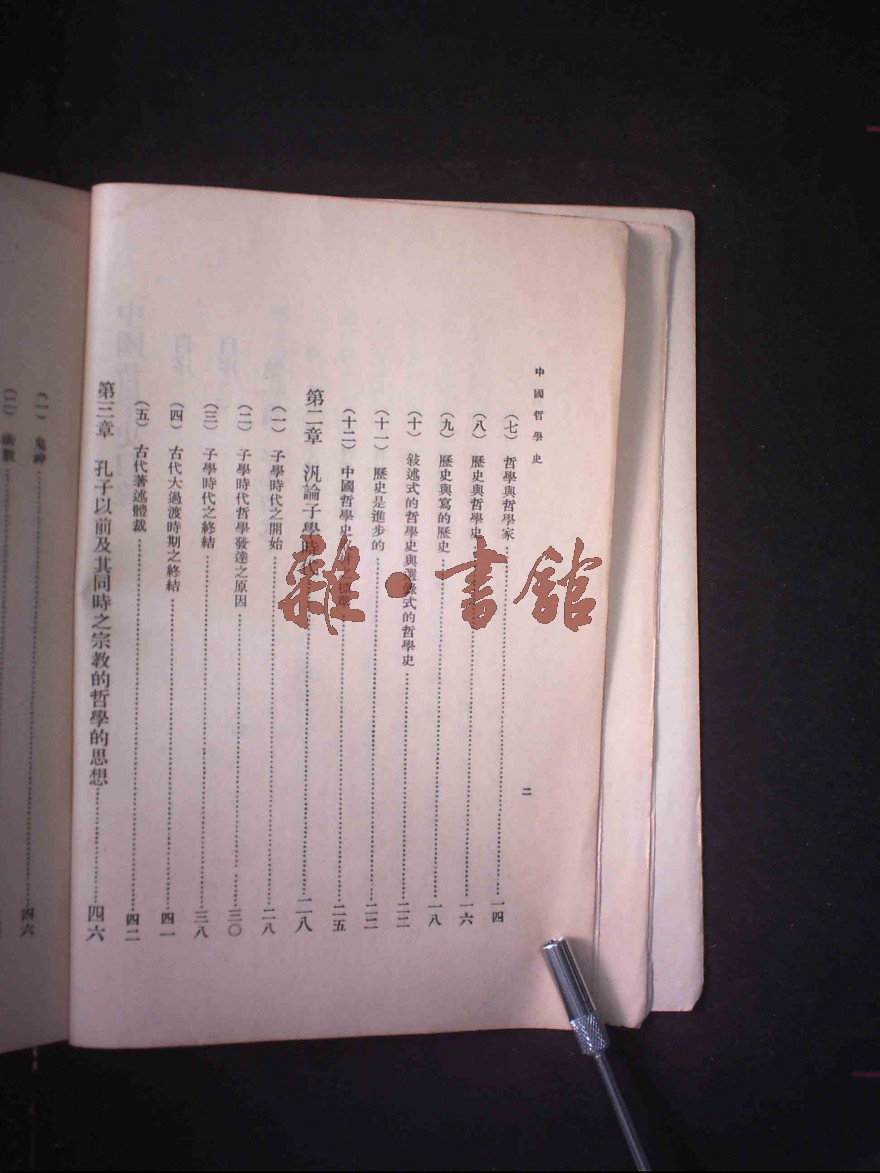 中國哲學史
二
（七） 哲學與哲學家……一四
（八） 歷史與哲學史……一六
（九） 歷史與寫的歷史……一八
（十） 敍述式的哲學史與選錄式的哲學史……二二
（十一） 歷史是進步的……二二
（十二） 中國哲學史……二五
第二章 汎論子學時代……二八
（一） 子學時代之開始……二八
（二） 子學時代哲學發達之原因……三〇
（三） 子學時代之終結……三八
（四） 古代大過渡時期之終結……四一
（五） 古代著述體裁……四二
第三章 孔子以前及其同時之宗教的哲學的思想……四六
（一） 鬼神……四六
（二） 術數
雜·書館